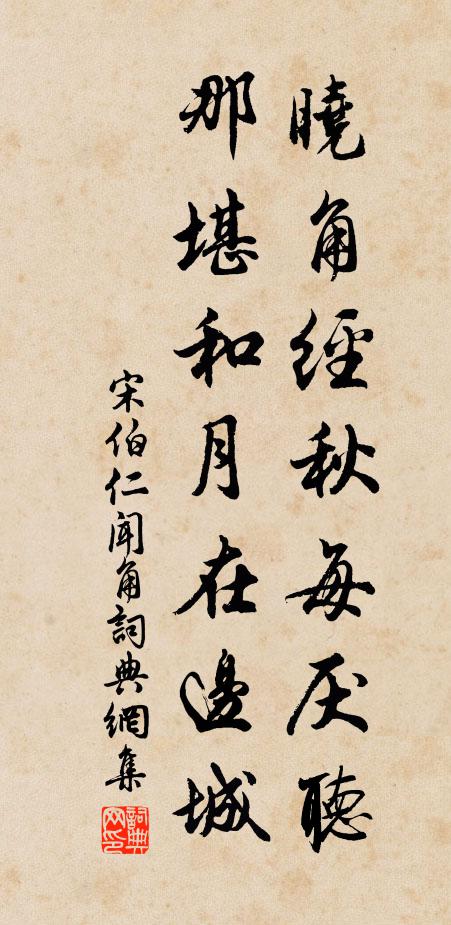 曉角經秋每厌聽
那堪和月在邊城
宋伯仁聞角詞典網集
詞典网印